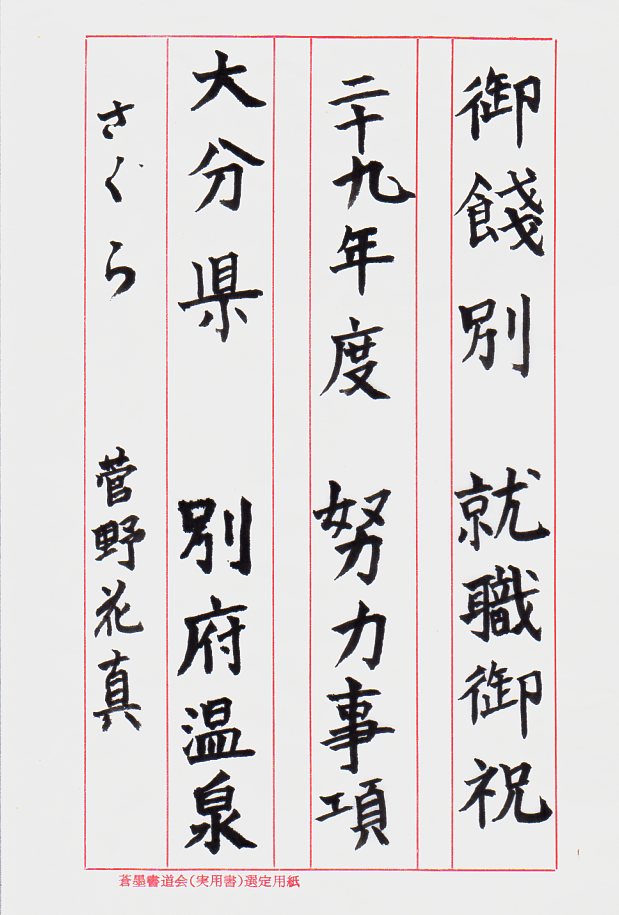 御餞別　就職御祝
二十九年度　努力事項
大分県　別府温泉
さくら　菅野花真
蒼墨書道会(実用書)選定用紙